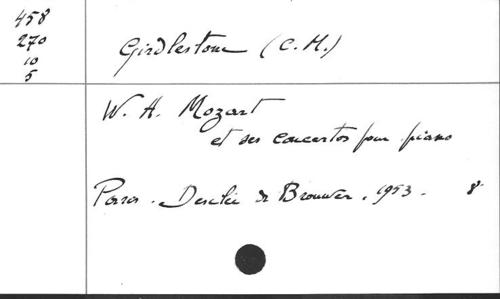 458
270
10
5
Girdlestone (C. M.)
W. A. Mozart
et ses concertos pour piano
Paris. Desclée de Brouwer. 1953. 8°